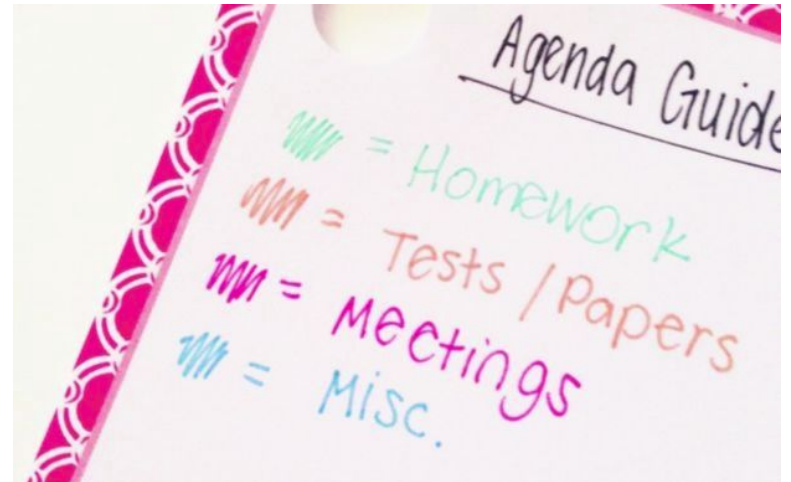 Agenda Guide
= Homework
= Tests / Papers
= Meetings
= Misc.